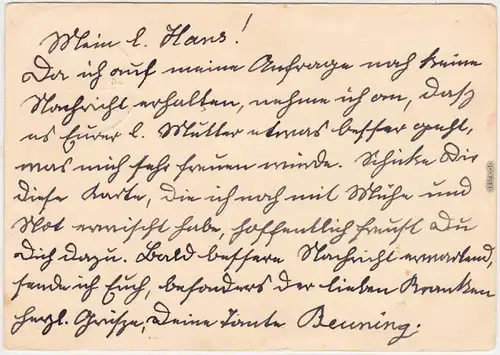 Mein l. Hans!
Da ich auf meine Anfrage noch keine
Nachricht erhalten, nehme ich an, daß
es Eurer l. Mutter etwas besser geht,
was mich sehr freuen würde. Schicke Dir
diese Karte, die ich noch mit Mühe und
Not erwischt habe, hoffentlich freust Du
Dich dazu. Bald bessere Nachricht erwartend,
sende ich Euch, besonders der lieben Kranken
herzl. Grüsze, Deine Tante Beuning.